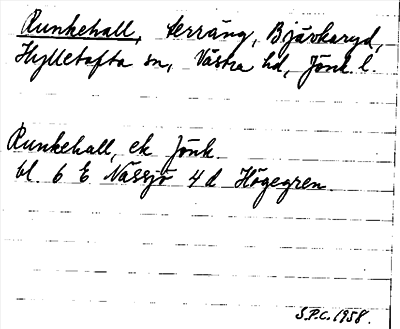 Runkehall, terräng, Bjävkaryd,
Hylletofta sn, Västra hd, Jönk. l.
Runkehall, ek Jönk.
bl. 6 E Nässjö 4 d Högegren.
S.P.C. 1958.